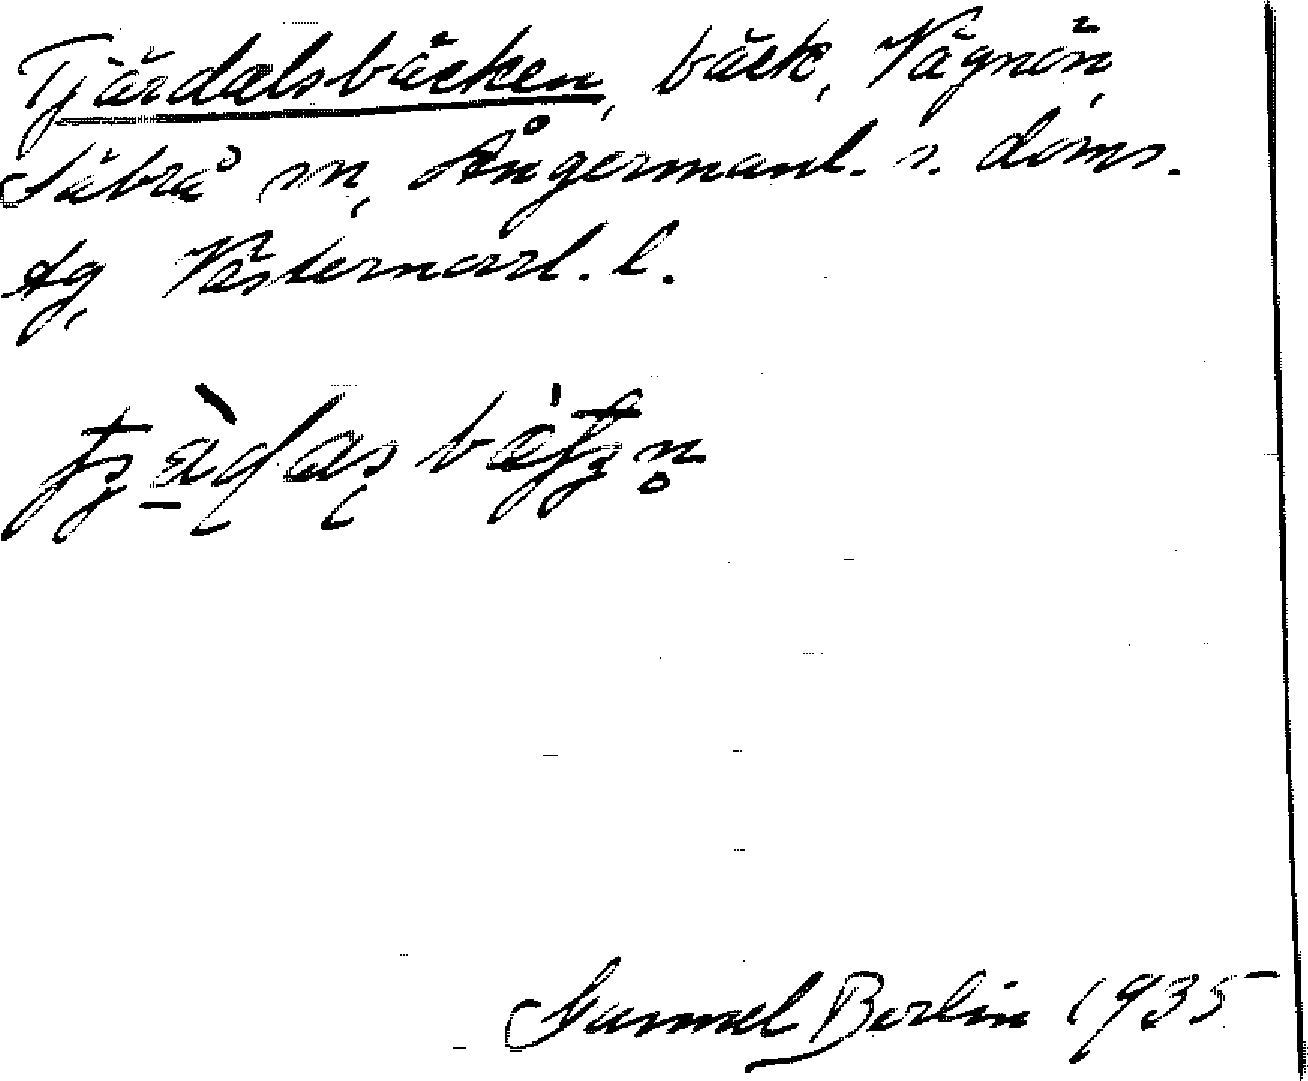 Tjärdalsbäcken, bäck, Vägnön,
Säbrå sn, Ångermanl. s. doms.
tg, Västernorrl. l.
Gummel Berlin 1935